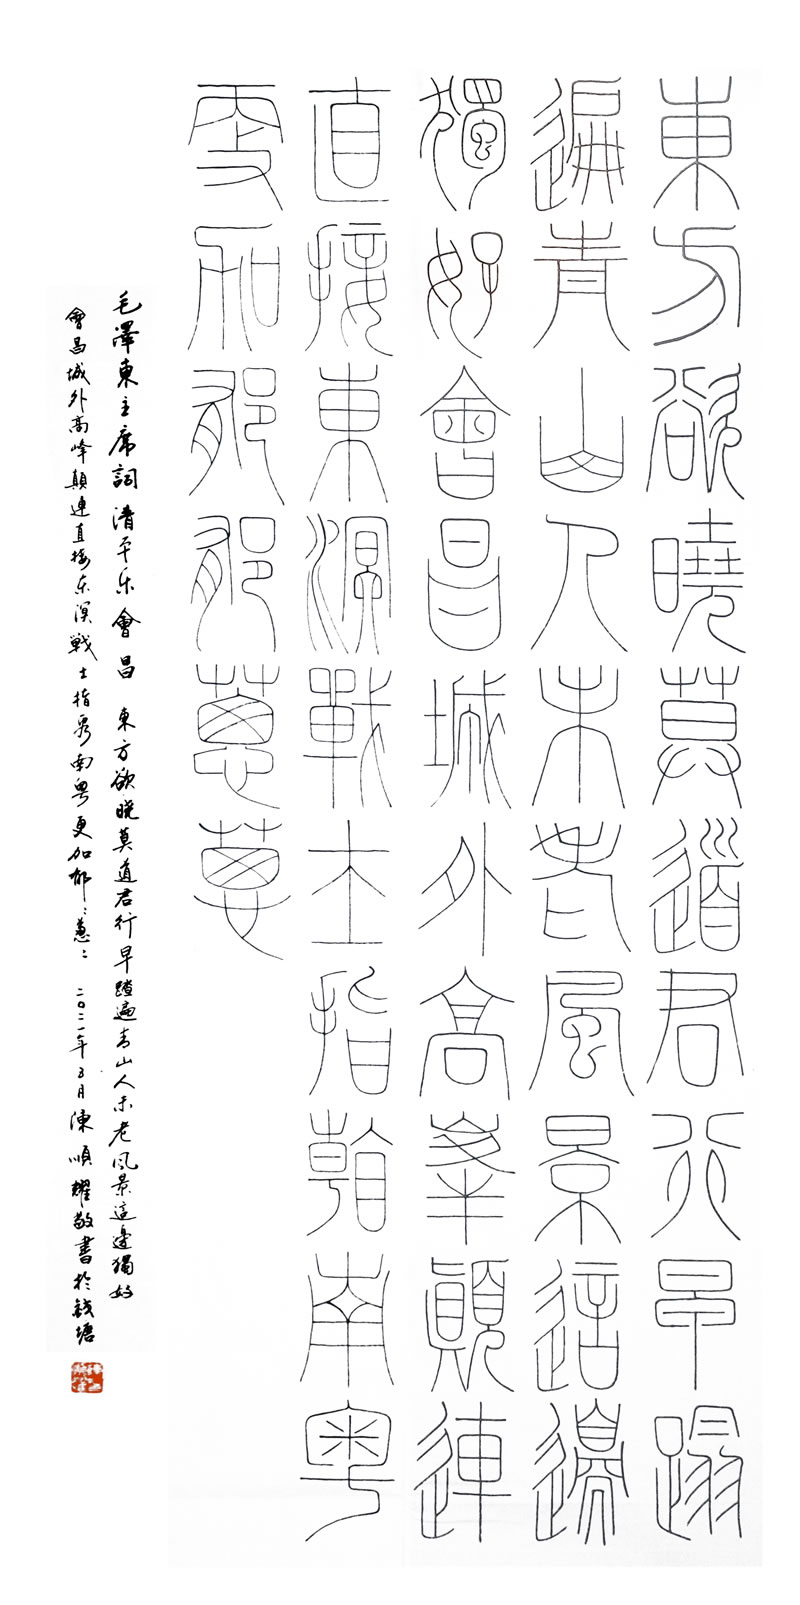 東方欲曉莫道君行早蹋
遍青山人未老風景這邊
獨好會昌城外高峯顛連
直接東溟戰士指看南粵
更加郁郁蔥蔥
毛澤東主席詞清平乐會昌 東方欲晓莫道君行早踏遍青山人未老风景這邊獨好
會昌城外高峰顛連直接东溟戰士指看南粤更加郁〻蔥〻 二〇二一年五月陳順耀敬書於錢塘